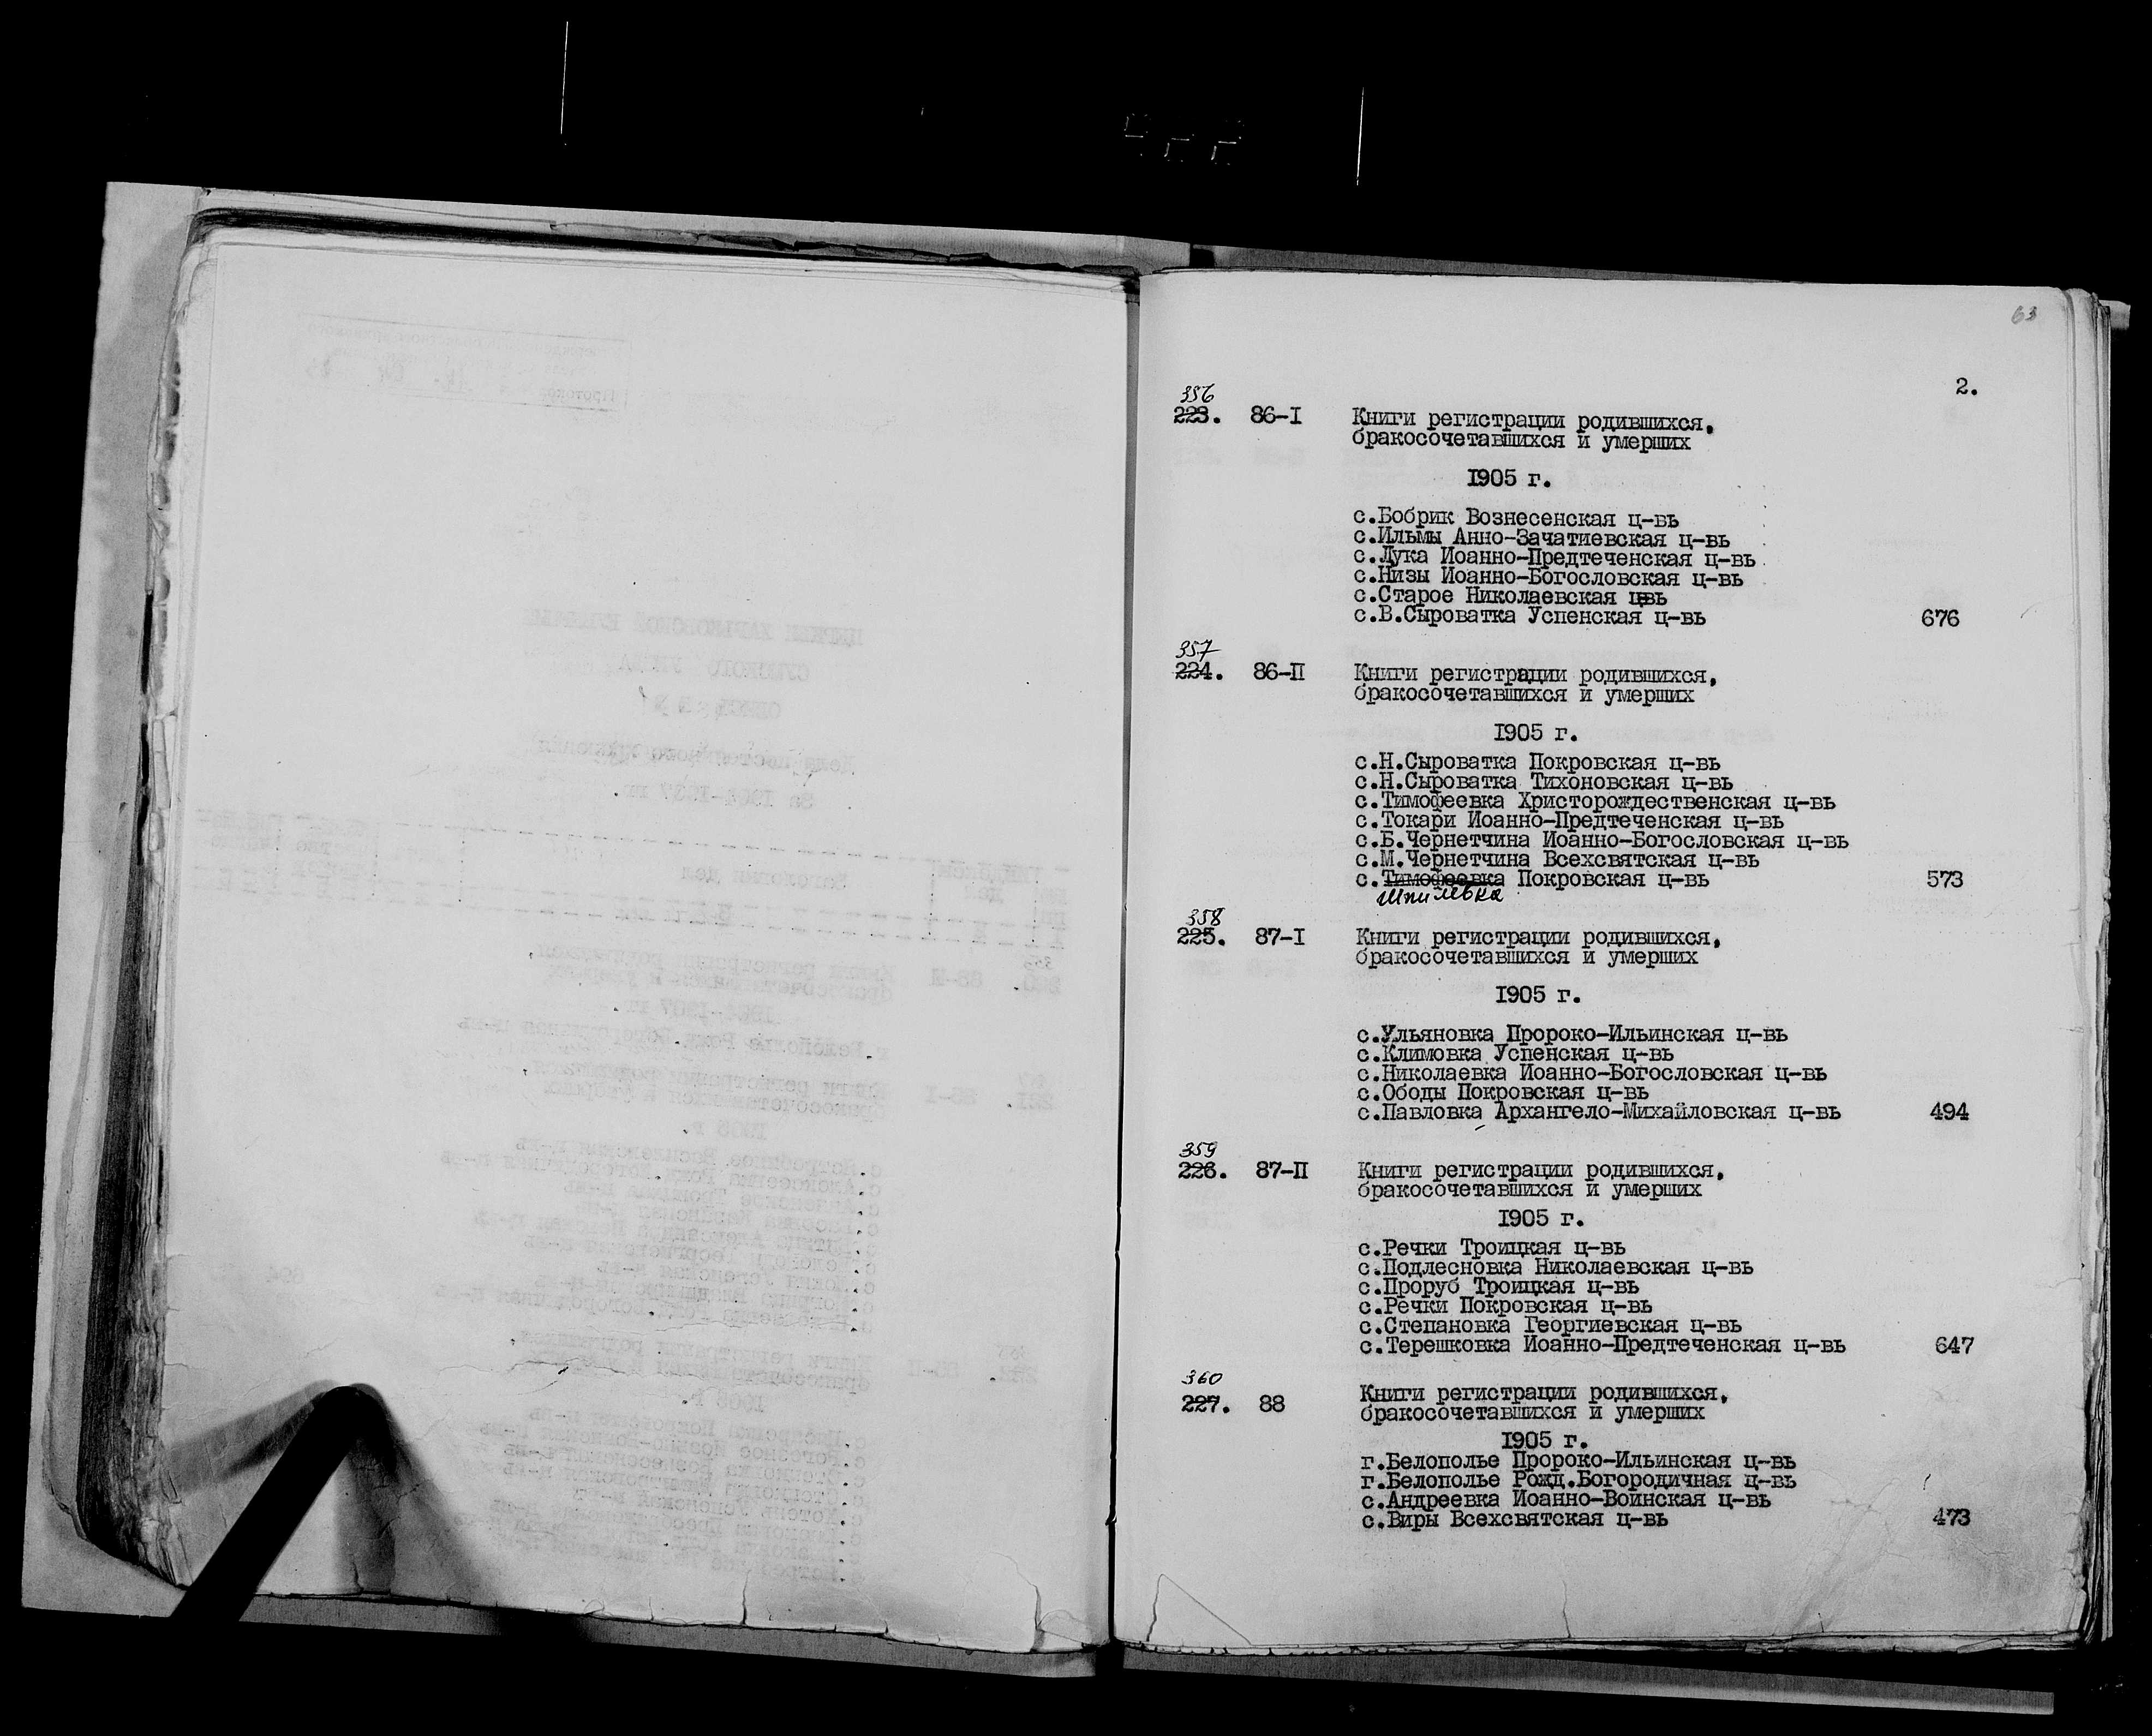 63
2.
356
223. 86-I Книги регистрации родившихся,
бракосочетавшихся и умерших
1905 г.
с.Бобрик Вознесенская ц-вь
с.Ильмы Анно-Зачатиевская ц-вь
с.Лука Иоанно-Предтеченская ц-вь
с.Низы Иоанно-Богословская ц-вь
с.Старое Николаевская ц-вь
с.В.Сыроватка Успенская ц-вь 676
357
224. 86-П Книги регистрации родившихся,
бракосочетавшихся и умерших
1905 г.
с.Н.Сыроватка Покровская ц-вь
с.Н.Сыроватка Тихоновская ц-вь
с.Тимофеевка Христорождественская ц-вь
с.Токари Иоанно-Предтеченская ц-вь
с.Б.Чернетчина Иоанно-Богословская ц-вь
с.М.Чернетчина Всехсвятская ц-вь
с.Тимофеевка Покровская ц-вь 573
Шпилевка
358
225. 87-I Книги регистрации родившихся,
бракосочетавшихся и умерших
1905 г.
с.Ульяновка Пророко-Ильинская ц-вь
с.Климовка Успенская ц-вь
с.Николаевка Иоанно-Богословская ц-вь
с.Ободы Покровская ц-вь
с.Павловка Архангело-Михайловская ц-вь 494
359
226. 87-П Книги регистрации родившихся,
бракосочетавшихся и умерших
1905 г.
с.Речки Троицкая ц-вь
с.Подлесновка Николаевская ц-вь
с.Проруб Троицкая ц-вь
с.Речки Покровская ц-вь
с.Степановка Георгиевская ц-вь
с.Терешковка Иоанно-Предтеченская ц-вь 647
360
227. 88 Книги регистрации родившихся,
бракосочетавшихся и умерших
1905 г.
г.Белополье Пророко-Ильинская ц-вь
г.Белополье Рожд.Богородичная ц-вь
с.Андреевка Иоанно-Воинская ц-вь
с.Виры Всехсвятская ц-вь 473